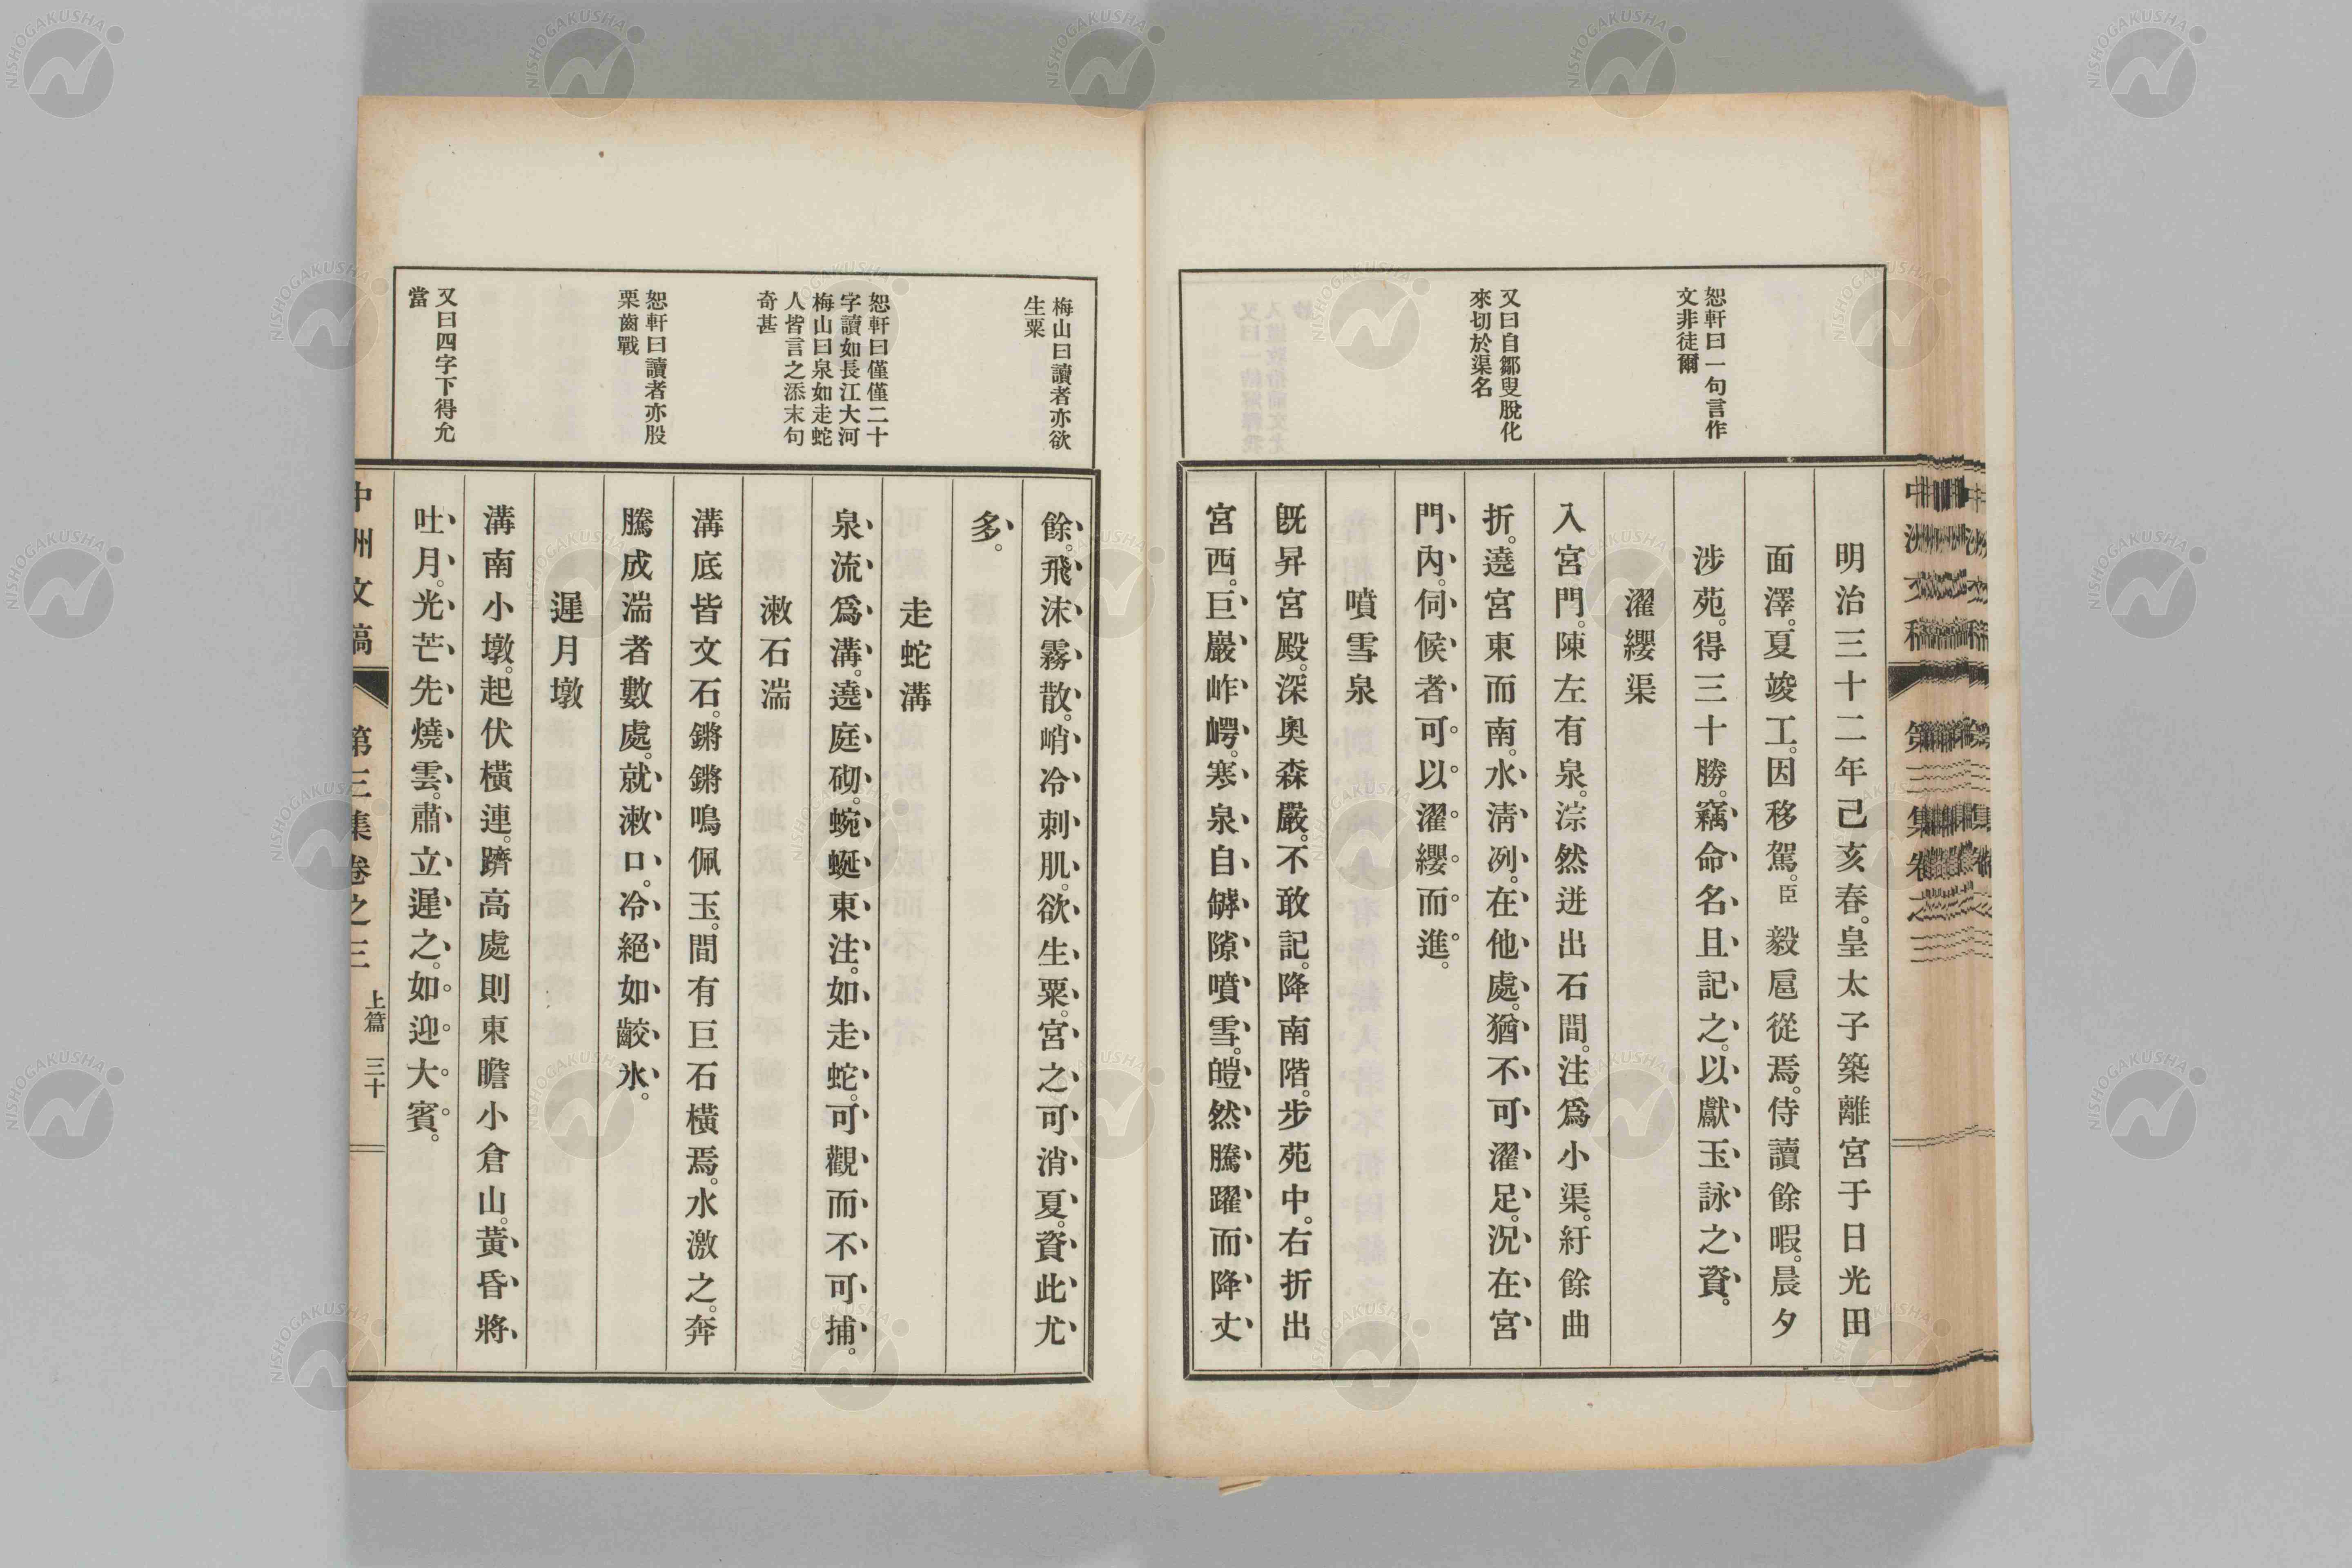 恕軒曰一句言作
文非徒爾
又曰自鄒叟脫化
來切於渠名
明治三十二年己亥春。皇太子築離宮于日光田
面澤。夏竣工。因移駕。臣毅扈從焉。侍讀餘暇。晨夕
涉苑。得三十勝。竊命名、且記之。以獻玉詠之資。
濯纓渠
入宮門。陳左有泉。淙然迸出石間。注爲小渠。紆餘曲
折。遶宮東而南。水淸冽。在他處。猶不可濯足。況在宮
門內。伺候者可以濯纓而進。
噴雪泉
既昇宮殿。深奧森嚴。不敢記。降南階。步苑中。右折出
宮西。巨巖岞崿。寒泉自罅隙噴雪。皚然騰躍而降丈
梅山曰讀者亦欲
生粟
恕軒曰僅僅二十
字讀如長江大河
梅山曰泉如走蛇
人皆言之添末句
奇甚
恕軒曰讀者亦股
栗齒戰
又曰四字下得允
當
餘。飛沫霧散。峭冷刺肌。欲生粟。宮之可消夏。資此尤
多。
走蛇溝
泉流爲溝。遶庭砌。蜿蜒東注。如走蛇。可觀而不可捕。
漱石湍
溝底皆文石。鏘鏘鳴佩玉。間有巨石橫焉。水激之。奔
騰成湍者數處。就漱口。冷絕如齩氷。
遲月墩
溝南小墩。起伏橫連。躋高處則東瞻小倉山。黃昏將
吐月。光芒先燒雲。肅立遲之。如迎大賓。
中洲文稿
第三集卷之三
上篇
三十
NISHOGAKUSHA